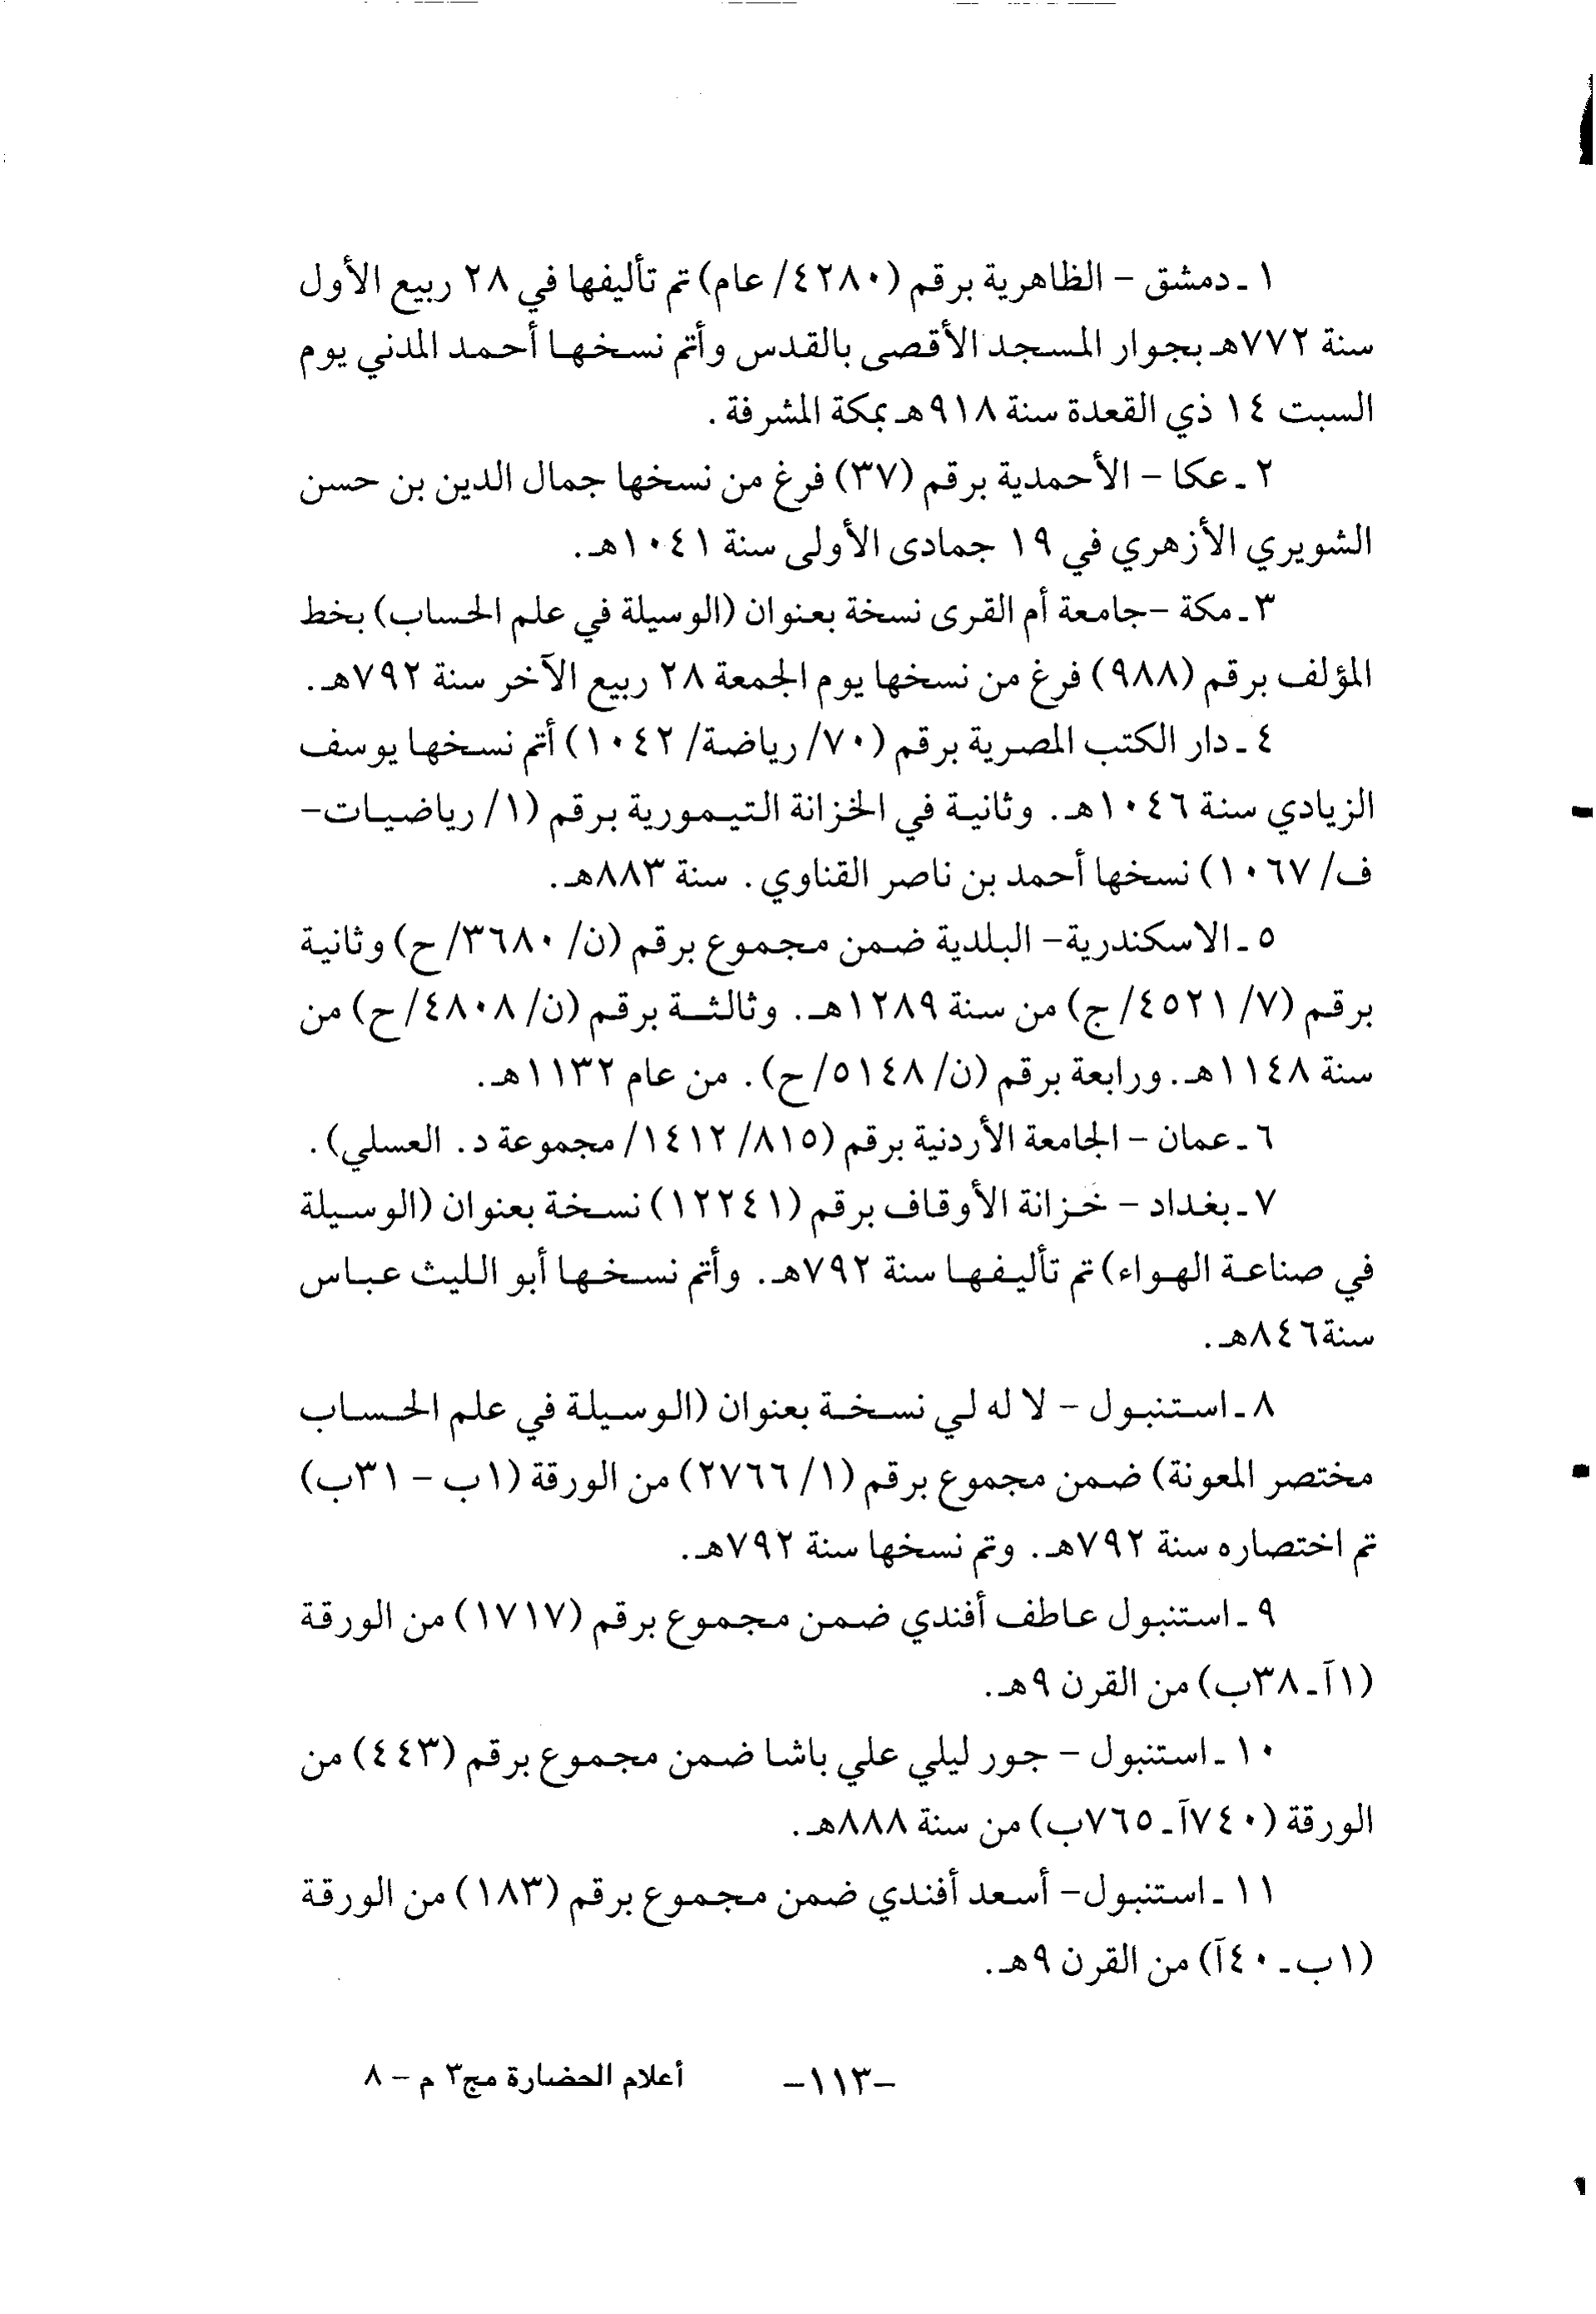 ١ ـ دمشق – الظاهرية برقم (٤٢٨٠/ عام) تم تأليفها في ٢٨ ربيع الأول
سنة ٧٧٢هـ بجوار المسجد الأقصى بالقدس وأتم نسخها أحمد المدني يوم
السبت ١٤ ذي القعدة سنة ٩١٨هـ بمكة المشرفة .
٢ ـ عكا – الأحمدية برقم (٣٧) فرغ من نسخها جمال الدين بن حسن
الشويري الأزهري في ١٩ جمادى الأولى سنة ١٠٤١هـ.
٣ ـ مكة –جامعة أم القرى نسخة بعنوان (الوسيلة في علم الحساب) بخط
المؤلف برقم (٩٨٨) فرغ من نسخها يوم الجمعة ٢٨ ربيع الآخر سنة ٧٩٢هـ.
٤ ـ دار الكتب المصرية برقم (٧٠/ رياضة/ ١٠٤٢) أتم نسخها يوسف
الزيادي سنة ١٠٤٦هـ. وثانية في الخزانة التيمورية برقم (١/ رياضيات–
ف/ ١٠٦٧) نسخها أحمد بن ناصر القناوي . سنة ٨٨٣هـ.
٥ ـ الاسكندرية– البلدية ضمن مجموع برقم (ن/ ٣٦٨٠/ ح) وثانية
برقم (٧/ ٤٥٢١/ ج) من سنة ١٢٨٩هـ. وثالثة برقم (ن/ ٤٨٠٨/ ح) من
سنة ١١٤٨هـ. ورابعة برقم (ن/ ٥١٤٨/ ح) . من عام ١١٣٢هـ.
٦ ـ عمان – الجامعة الأردنية برقم (٨١٥/ ١٤١٢/ مجموعة د. العسلي) .
٧ ـ بغداد – خزانة الأوقاف برقم (١٢٢٤١) نسخة بعنوان (الوسيلة
في صناعة الهواء) تم تأليفها سنة ٧٩٢هـ. وأتم نسخها أبو الليث عباس
سنة٨٤٦هـ.
٨ ـ استنبول – لا له لي نسخة بعنوان (الوسيلة في علم الحساب
مختصر المعونة) ضمن مجموع برقم (١/ ٢٧٦٦) من الورقة (١ب – ٣١ب)
تم اختصاره سنة ٧٩٢هـ. وتم نسخها سنة ٧٩٢هـ.
٩ ـ استنبول عاطف أفندي ضمن مجموع برقم (١٧١٧) من الورقة
(١آ ـ ٣٨ب) من القرن ٩هـ.
١٠ ـ استنبول – جور ليلي علي باشا ضمن مجموع برقم (٤٤٣) من
الورقة (٧٤٠آ ـ ٧٦٥ب) من سنة ٨٨٨هـ.
١١ ـ استنبول– أسعد أفندي ضمن مجموع برقم (١٨٣) من الورقة
(١ب ـ ٤٠آ) من القرن ٩هـ.
–١١٣– أعلام الحضارة مج٣ م – ٨